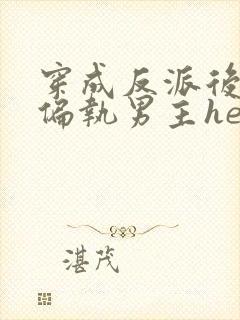 穿成反派後
偏執男主he
湛茂